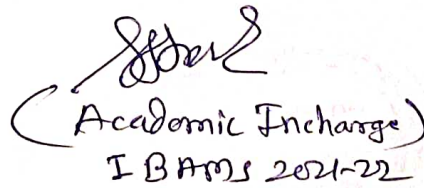 (Academic Incharge)
I BAMS 2021-22